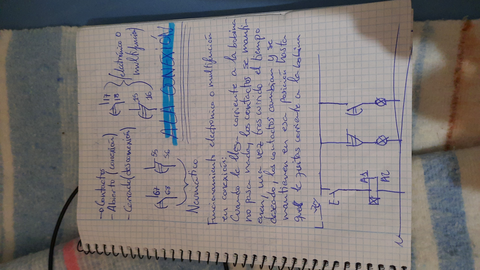 - Contacto
- Abierto (conexión)
- Cerrado (desconexión)
67
68
55
56
Neumático
17
18
25
26
(electrónico o
multifunción
A LA CONEXIÓN
Funcionamiento electrónico o multifunción
en conexión:
Cuando le llega corriente a la bobina
no pasa nada, los contactos se mantie-
nen, una vez transcurrido el tiempo
deseado, los contactos cambian y se
mantienen en esa posición hasta
que le quitas corriente a la bobina
L
E
A1
A2
N